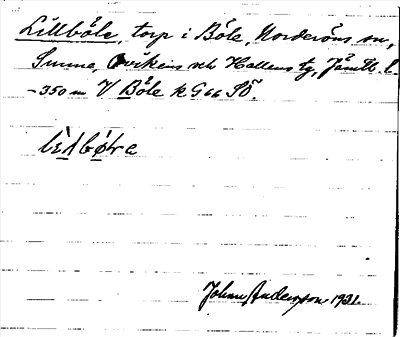 Lillböle, torp i Böle, Norderöns sn,
Sunne, Ovikens och Hallens tg, Jämtl. l.
-350 m V Böle k G 66 SÖ.
Johan Anderson 1931.